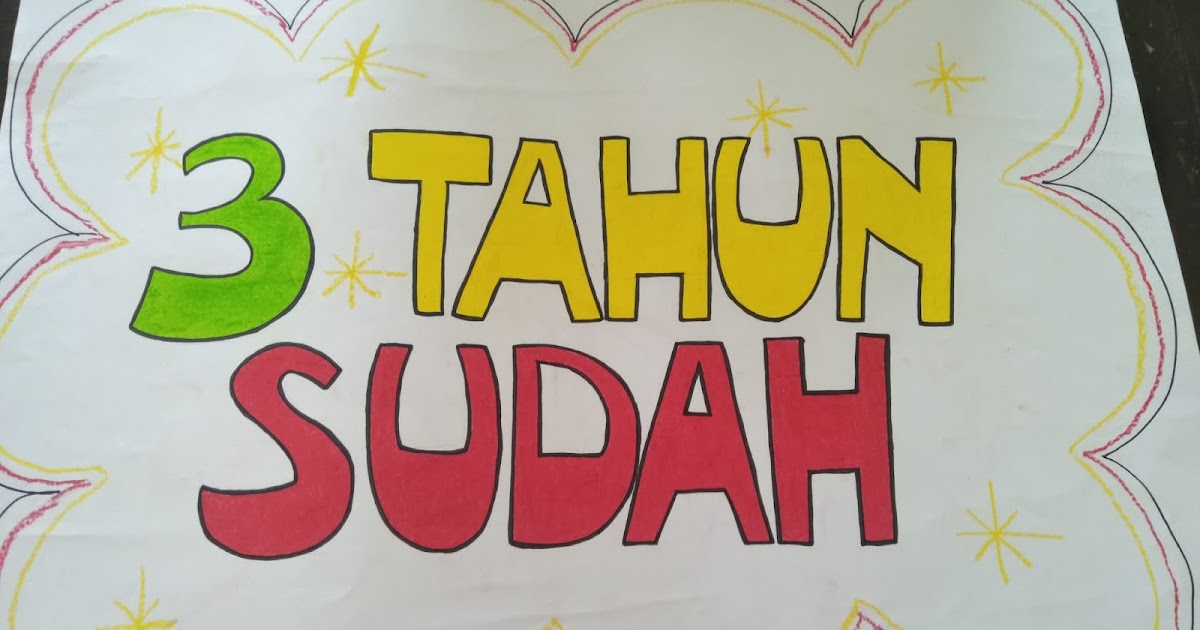 3 TAHUN
SUDAH